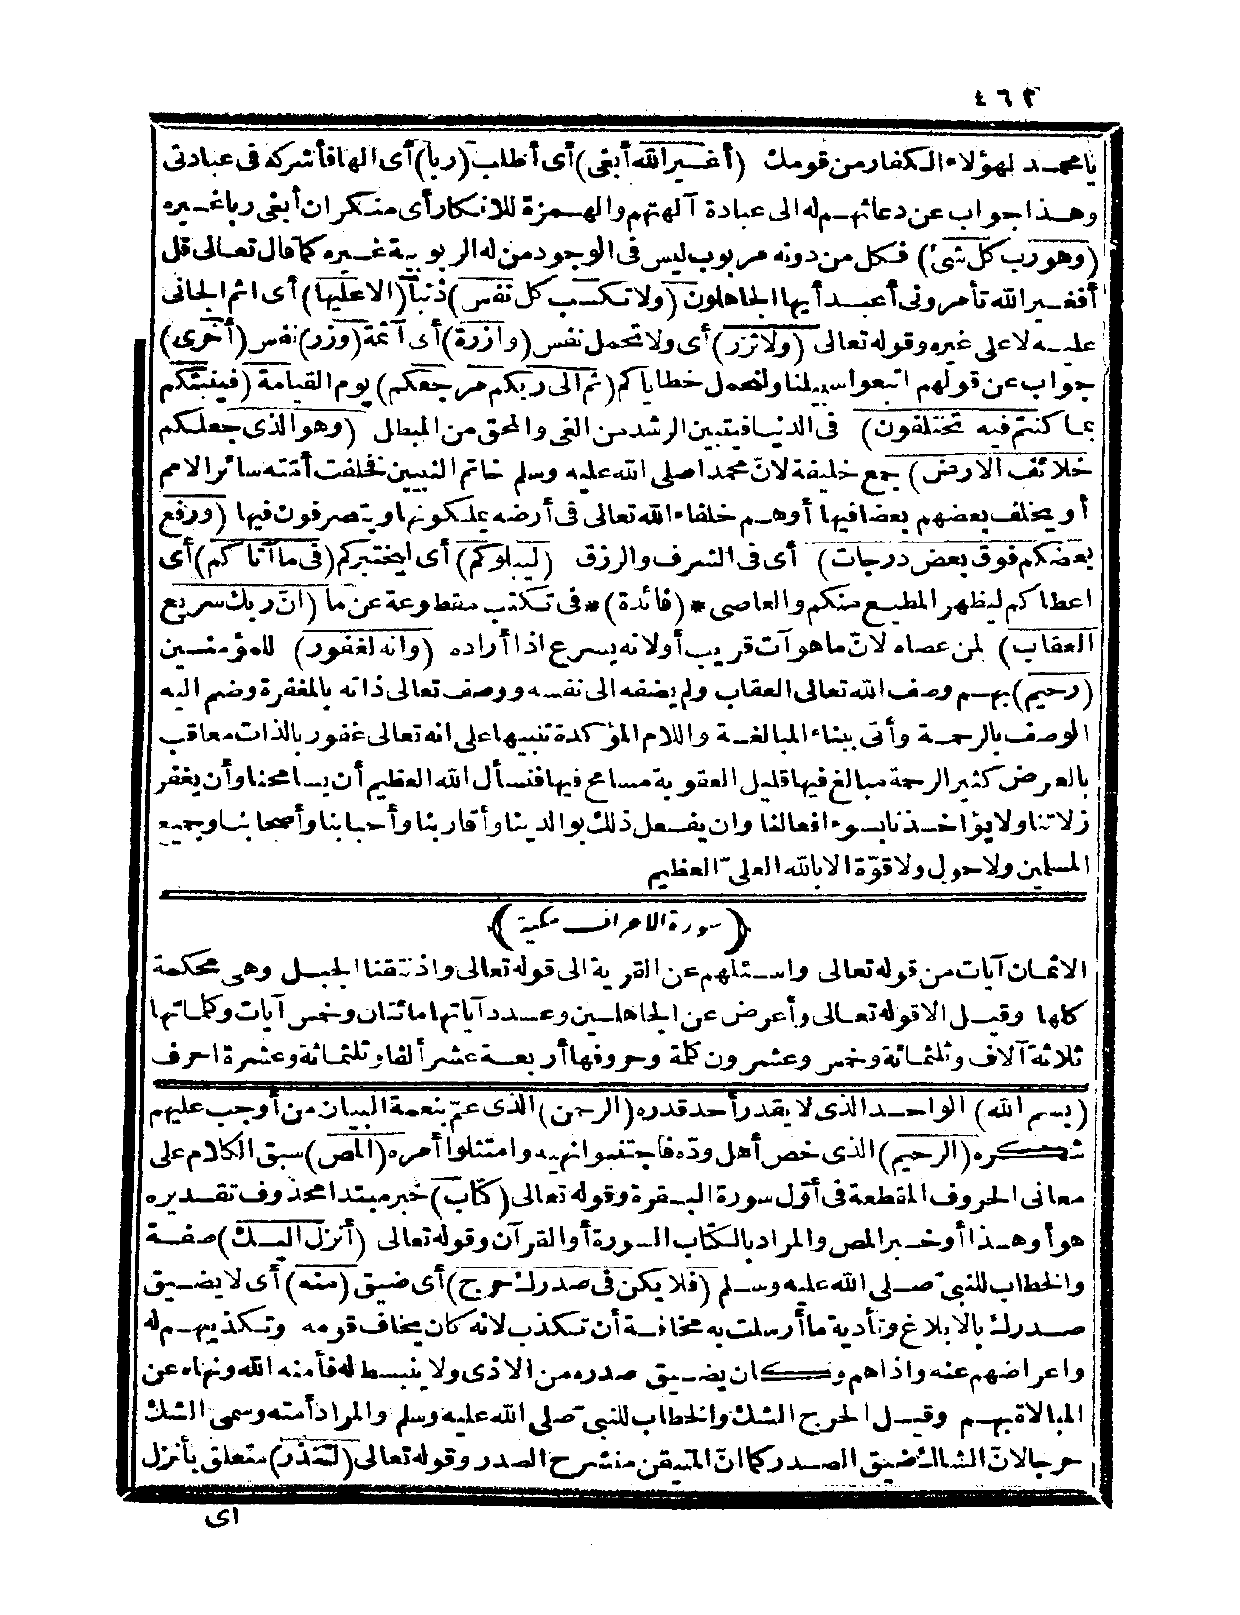 ٤٦٢
يا محمد لهؤلاء الكفار من قومك (أغير الله أبغى) أى أطلب (ربا) أى الها فأشركه فى عبادتى
وهذا جواب عن دعائهم له الى عبادة آلهتهم والهمزة للانكار أى منكر ان أبغى ربا غيره
(وهو رب كل شئ) فكل من دونه مربوب ليس فى الوجود من له الربوبية غيره كما قال تعالى قل
أفغير الله تأمرونى أعبد أيها الجاهلون (ولا تكسب كل نفس) ذنبا (الا عليها) أى اثم الجانى
عليه لا على غيره وقوله تعالى (ولا تزر) أى ولا تحمل نفس (وازرة) أى آثمة (وزر) نفس (أخرى)
جواب عن قولهم اتبعوا سبيلنا ولنحمل خطاياكم (ثم الى ربكم مرجعكم) يوم القيامة (فينبئكم
بما كنتم فيه تختلفون) فى الدنيا فيتبين الرشد من الغى والمحق من المبطل (وهو الذى جعلكم
خلائف الارض) جمع خليفة لانّ محمدا صلى الله عليه وسلم خاتم النبيين فخلفت أمّته سائر الامم
أو يخلف بعضهم بعضا فيها أو هم خلفاء الله تعالى فى أرضه يملكونها ويتصرفون فيها (ورفع
بعضكم فوق بعض درجات) أى فى الشرف والرزق (ليبلوكم) أى ليختبركم (فى ما آتاكم) أى
اعطاكم ليظهر المطيع منكم والعاصى * (فائدة) * فى تكتب مقطوعة عن ما (انّ ربك سريع
العقاب) لمن عصاه لانّ ما هو آت قريب أو لانه يسرع اذا أراده (وانه لغفور) للمؤمنين
(رحيم) بهم وصف الله تعالى العقاب ولم يضفه الى نفسه ووصف تعالى ذاته بالمغفرة وضم اليه
الوصف بالرحمة وأتى ببناء المبالغة واللام المؤكدة تنبيها على انه تعالى غفور بالذات معاقب
بالعرض كثير الرحمة مبالغ فيها قليل العقوبة مسامح فيها فنسأل الله العظيم أن يسامحنا وأن يغفر
زلاتنا ولا يؤاخذنا بسوء افعالنا وان يفعل ذلك بوالدينا وأقاربنا وأحبابنا وأصحابنا وجميع
المسلمين ولا حول ولا قوّة الا بالله العلىّ العظيم
(سورة الاعراف مكية)
الاثمان آيات من قوله تعالى واسئلهم عن القرية الى قوله تعالى واذ نتقنا الجبل وهى محكمة
كلها وقيل الا قوله تعالى وأعرض عن الجاهلين وعدد آياتها مائتان وخمس آيات وكلماتها
ثلاثة آلاف وثلثمائة وخمس وعشرون كلمة وحروفها أربعة عشر ألفا وثلثمائة وعشرة احرف
(بسم الله) الواحد الذى لا يقدر أحد قدره (الرحمن) الذى عمّ بنعمة البيان من أوجب عليهم
شكره (الرحيم) الذى خص أهل ودّه فاجتنبوا نهيه وامتثلوا أمره (المص) سبق الكلام على
معانى الحروف المقطعة فى أوّل سورة البقرة وقوله تعالى (كتاب) خبر مبتدا محذوف تقديره
هو أو هذا أو خبر المص والمراد بالكتاب السورة أو القرآن وقوله تعالى (أنزل اليك) صفة
والخطاب للنبىّ صلى الله عليه وسلم (فلا يكن فى صدرك حرج) أى ضيق (منه) أى لا يضيق
صدرك بالابلاغ وتأدية ما أرسلت به مخافة أن تكذب لانه كان يخاف قومه وتكذيبهم له
واعراضهم عنه واذاهم وكان يضيق صدره من الاذى ولا ينبسط له فأمنه الله ونهاه عن
المبالاة بهم وقيل الحرج الشك والخطاب للنبىّ صلى الله عليه وسلم والمراد أمته وسمى الشك
حرجا لانّ الشاك ضيق الصدر كما انّ المتيقن منشرح الصدر وقوله تعالى (لتنذر) متعلق بأنزل
اى